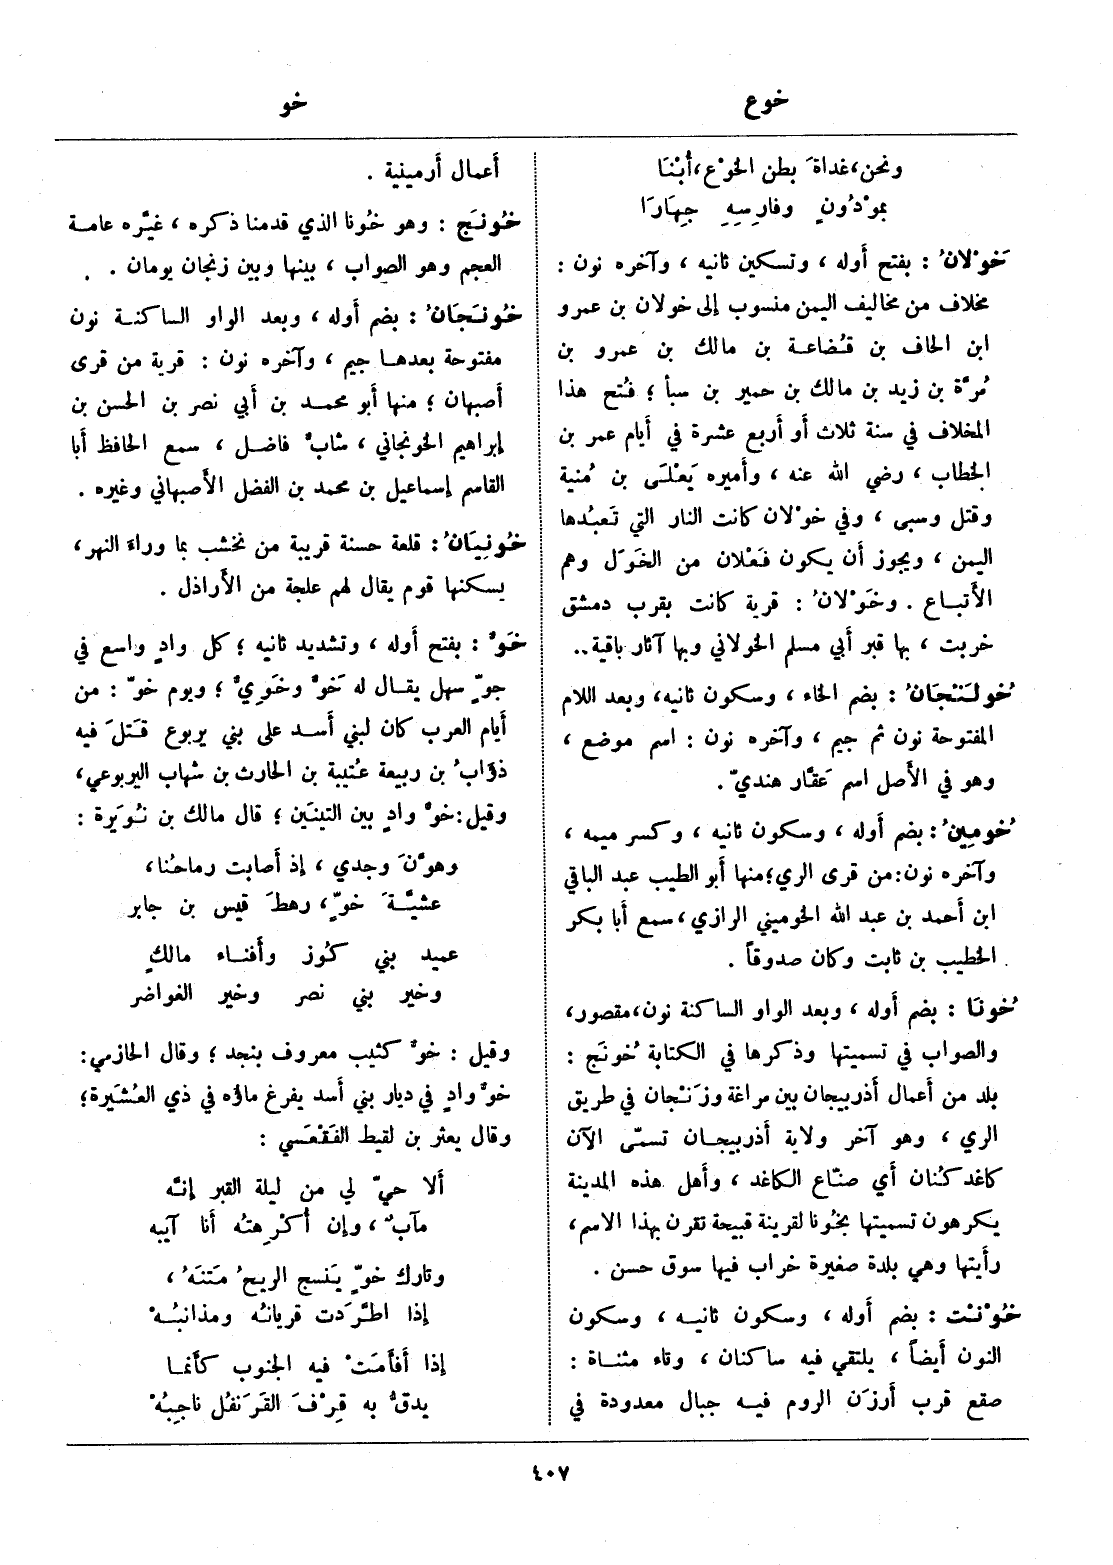 خوع
خو
ونحن، غداةَ بطن الخوْع، أُبْنَا
بموْدُونٍ وفارسِهِ جِهارَا
خَوْلانُ : بفتح أوله ، وتسكين ثانيه ، وآخره نون :
مخلاف من مخاليف اليمن منسوب إلى خولان بن عمرو
ابن الحاف بن قُضاعة بن مالك بن عمرو بن
مُرَّة بن زيد بن مالك بن حمير بن سبأ ؛ فُتح هذا
المخلاف في سنة ثلاث أو أربع عشرة في أيام عمر بن
الخطاب ، رضي الله عنه ، وأميره يَعْلَى بن مُنية
وقتل وسبى ، وفي خوْلان كانت النار التي تَعبُدها
اليمن ، ويجوز أن يكون فَعْلان من الخَوَل وهم
الأَتباع . وخَوْلانُ : قرية كانت بقرب دمشق
خربت ، بها قبر أبي مسلم الخولاني وبها آثار باقية..
خُولَنْجَانُ : بضم الخاء ، وسكون ثانيه، وبعد اللام
المفتوحة نون ثم جيم ، وآخره نون : اسم موضع ،
وهو في الأصل اسم عَقَّار هنديّ .
خُومِينُ : بضم أوله ، وسكون ثانيه ، وكسر ميمه ،
وآخره نون: من قرى الري؛ منها أبو الطيب عبد الباقي
ابن أحمد بن عبد الله الخوميني الرازي، سمع أبا بكر
الخطيب بن ثابت وكان صدوقاً .
خُونَا : بضم أوله ، وبعد الواو الساكنة نون، مقصور،
والصواب في تسميتها وذكرها في الكتابة خُونَج :
بلد من أعمال أذربيجان بين مراغة وزَنْجان في طريق
الري ، وهو آخر ولاية أذربيجان تسمّى الآن
كاغدكُنان أي صنّاع الكاغد ، وأهل هذه المدينة
يكرهون تسميتها بخُونا لقرينة قبيحة تقرن بهذا الاسم،
رأيتها وهي بلدة صغيرة خراب فيها سوق حسن .
خُوْنْت : بضم أوله ، وسكون ثانيه ، وسكون
النون أيضاً ، يلتقي فيه ساكنان ، وتاء مثناة :
صقع قرب أرزَن الروم فيه جبال معدودة في
أعمال أرمينية .
خُونَج : وهو خُونا الذي قدمنا ذكره ، غيَّره عامة
العجم وهو الصواب ، بينها وبين زنجان يومان .
خُونَجَانُ : بضم أوله ، وبعد الواو الساكنة نون
مفتوحة بعدها جيم ، وآخره نون : قرية من قرى
أصبهان ؛ منها أبو محمد بن أبي نصر بن الحسن بن
إبراهيم الخونجاني ، شابٌ فاضل ، سمع الحافظ أبا
القاسم إسماعيل بن محمد بن الفضل الأصبهاني وغيره .
خُونِيَانُ : قلعة حسنة قريبة من نخشب بما وراءَ النهر،
يسكنها قوم يقال لهم علجة من الأراذل .
خَوّ : بفتح أوله ، وتشديد ثانيه ؛ كل وادٍ واسع في
جوّ سهل يقال له خَوٌّ وخَوِيٌّ ؛ ويوم خوّ : من
أيام العرب كان لبني أسد على بني يربوع قَتَلَ فيه
ذؤابُ بن ربيعة عُتيبة بن الحارث بن شهاب اليربوعي،
وقيل: خوٌّ وادٍ بين التينَين ؛ قال مالك بن نُوَيرة :
وهوَّنَ وجدي ، إذ أصابت رماحُنا،
عشيَّةَ خوٍّ، رهطَ قيس بن جابر
عميد بني كُوز وأَفناء مالكٍ
وخير بني نصر وخير الغواضر
وقيل : خوٌّ كثيب معروف بنجد ؛ وقال الحازمي:
خوٌّ وادٍ في ديار بني أسد يفرغ ماؤه في ذي العُشَيرة؛
وقال يعثر بن لقيط الفَقْعَسي :
ألا حيّ لي من ليلة القبر إنَّه
مآبٌ ، وإن أُكْرِهتُه أنا آيبه
وتارك خوٍّ يَنسج الريحُ مَتنَهُ ،
إذا اطَّرَدت قريانُه ومذانبُهْ
إذا أفأمَتْ فيه الجنوب كأَنما
يدقُّ به قِرْفَ القَرَنفُل ناجبُهْ
٤٠٧